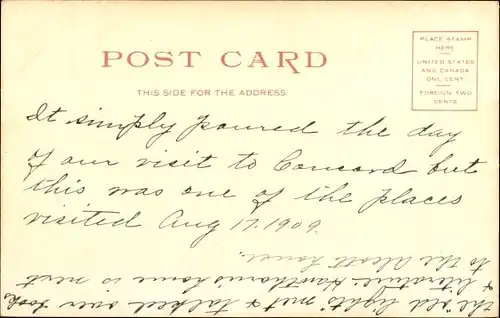 POST CARD
THIS SIDE FOR THE ADDRESS
PLACE STAMP
HERE
UNITED STATES
AND CANADA
ONE CENT
FOREIGN TWO
CENTS
It simply poured the day
of our visit to Concord but
this was one of the places
visited Aug 17. 1909.
the old lights met & talked over books
& literature. Hawthorne's home is next
to the Alcott home.